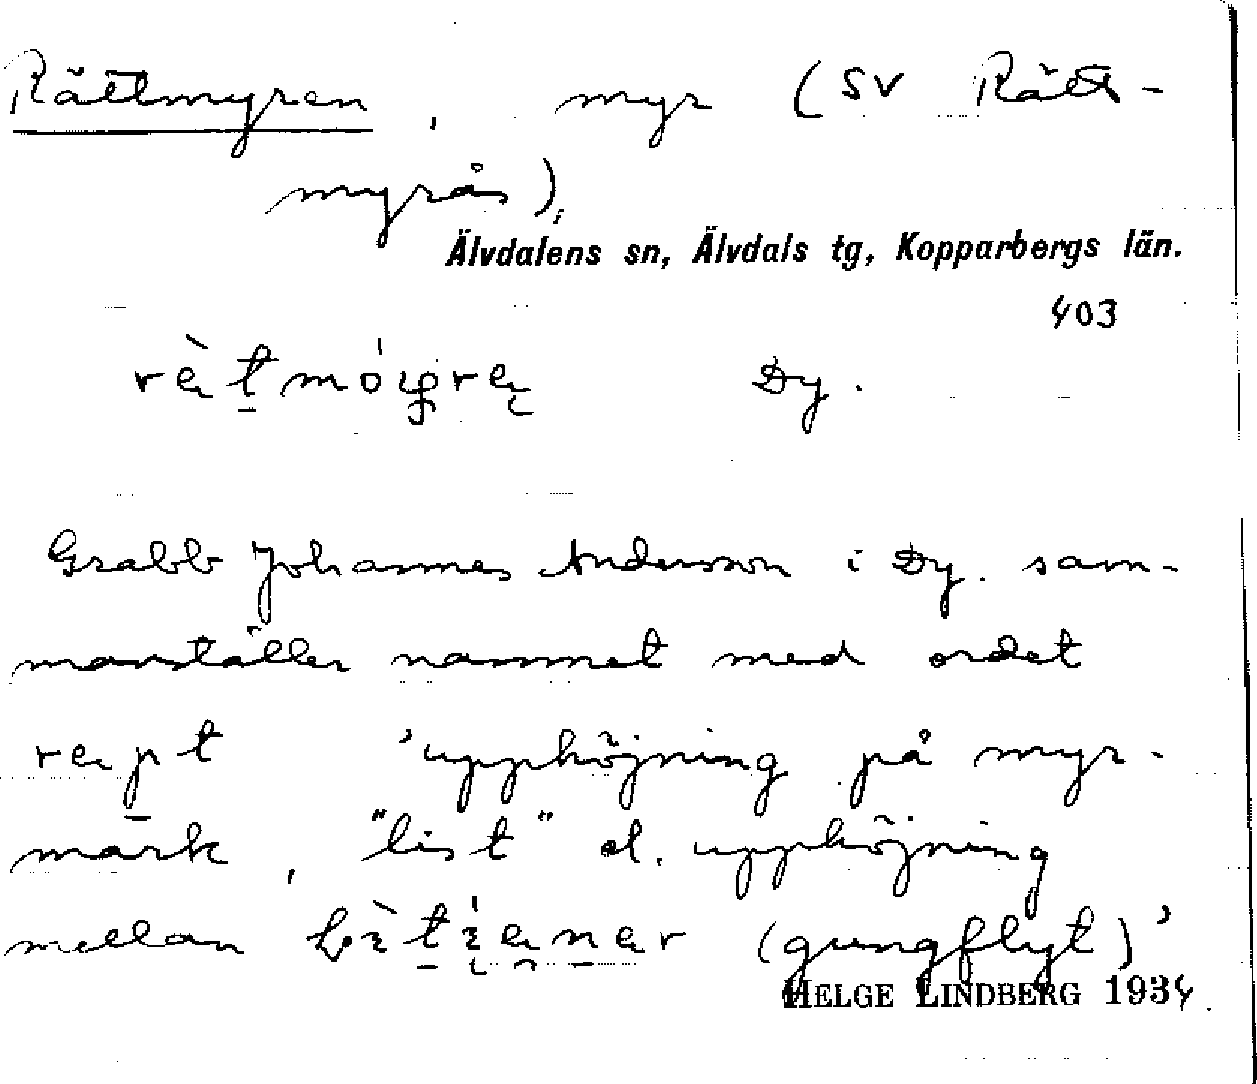 Rättmyren, myr (SV Rätt-
myrås),
Älvdalens sn, Älvdals tg, Kopparbergs län.
403
Dy.
Grabb Johannes Andersson i Dy. sam-
manställer namnet med ordet
'upphöjning på myr-
mark, "list" el. upphöjning
mellan (gungflyt)'
HELGE LINDBERG 1934.